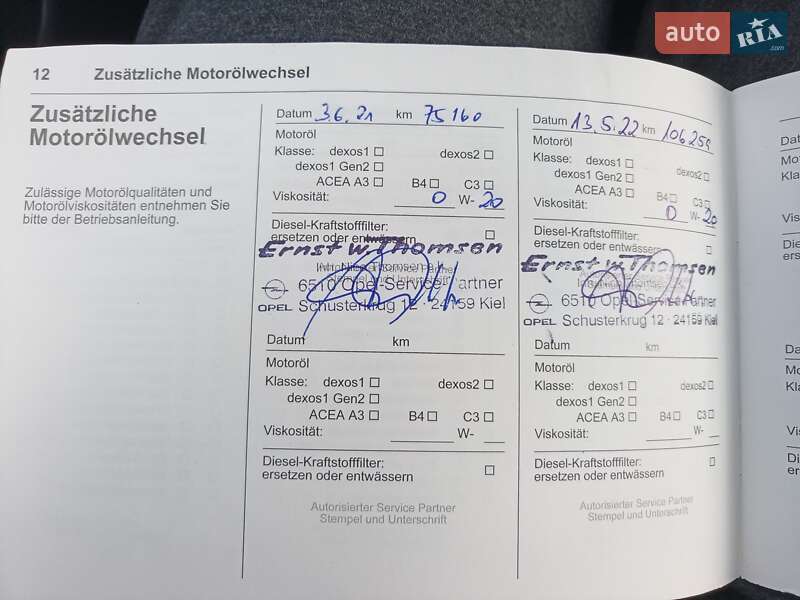 auto RIA.com
12 Zusätzliche Motorölwechsel
Zusätzliche
Motorölwechsel
Zulässige Motorölqualitäten und
Motorölviskositäten entnehmen Sie
bitte der Betriebsanleitung.
Datum 3.6.21 km 75160
Motoröl
Klasse: dexos1 dexos2
dexos1 Gen2
ACEA A3 B4 C3
Viskosität: 0 W- 20
Diesel-Kraftstofffilter:
ersetzen oder entwässern
Ernst W. Thomsen
6510 Opel-Service Partner
OPEL Schusterkrug 12 · 24159 Kiel
Datum km
Motoröl
Klasse: dexos1 dexos2
dexos1 Gen2
ACEA A3 B4 C3
Viskosität: W-
Diesel-Kraftstofffilter:
ersetzen oder entwässern
Autorisierter Service Partner
Stempel und Unterschrift
Datum 13.5.22 km 106259
Motoröl
Klasse: dexos1 dexos2
dexos1 Gen2
ACEA A3 B4 C3
Viskosität: 0 W- 20
Diesel-Kraftstofffilter:
ersetzen oder entwässern
Ernst W. Thomsen
6510 Opel-Service Partner
OPEL Schusterkrug 12 · 24159 Kiel
Datum km
Motoröl
Klasse: dexos1 dexos2
dexos1 Gen2
ACEA A3 B4 C3
Viskosität: W-
Diesel-Kraftstofffilter:
ersetzen oder entwässern
Autorisierter Service Partner
Stempel und Unterschrift